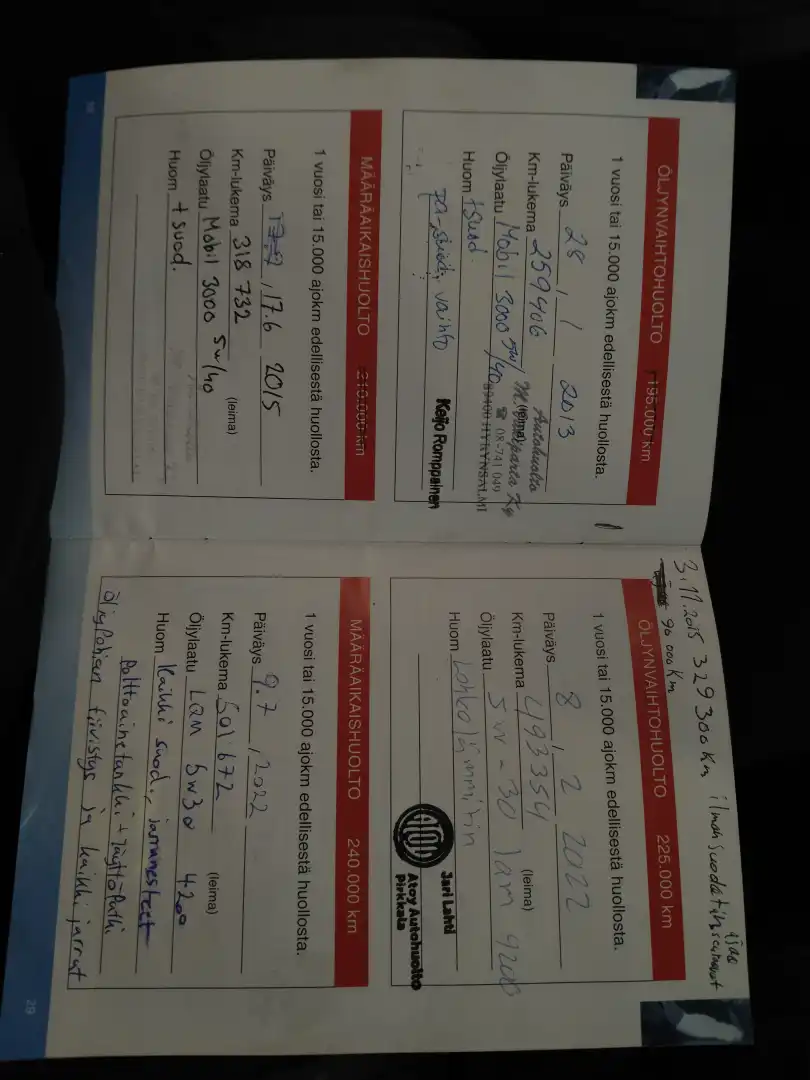 ÖLJYNVAIHTOHUOLTO 195.000 km
1 vuosi tai 15.000 ajokm edellisestä huollosta.
Päiväys 28 , 1 2013
Km-lukema 259406
Autohuolto
Öljylaatu Mobil 3000 5W/40 (leima)
☎ 08-741 049
89400 HYRYNSALMI
Huom + Suod.
vaihto
Keijo Romppainen
MÄÄRÄAIKAISHUOLTO 210.000 km
1 vuosi tai 15.000 ajokm edellisestä huollosta.
Päiväys , 17.6 2015
Km-lukema 318 732
(leima)
Öljylaatu Mobil 3000 5w/40
Huom + suod.
28
3.11.2015 329 300 Km ilmansuodatin
90 000 Km
ÖLJYNVAIHTOHUOLTO 225.000 km
1 vuosi tai 15.000 ajokm edellisestä huollosta.
Päiväys 8 , 2 2022
Km-lukema 493354
(leima)
Öljylaatu 5w-30 lam 4200
Huom Lohkolämmitin
Jari Lahti
Atoy Autohuolto
Pirkkala
MÄÄRÄAIKAISHUOLTO 240.000 km
1 vuosi tai 15.000 ajokm edellisestä huollosta.
Päiväys 9.7 , 2022
Km-lukema 501 672
(leima)
Öljylaatu LAM 5w30 4200
Huom Kaikki suod., jarrunesteet
Polttoainetankki + täyttöputki
öljypohjan tiivistys ja kaikki jarrut
29